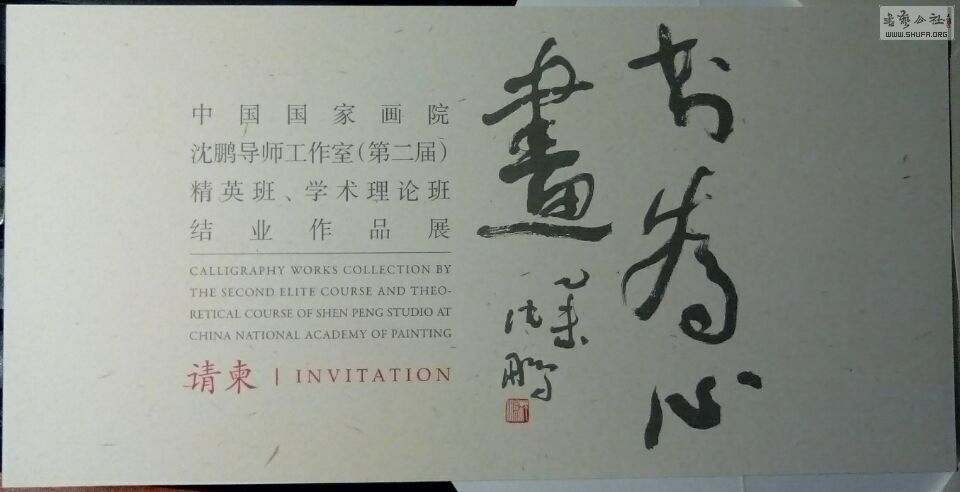 中国国家画院
沈鹏导师工作室(第二届)
精英班、学术理论班
结业作品展
CALLIGRAPHY WORKS COLLECTION BY
THE SECOND ELITE COURSE AND THEO-
RETICAL COURSE OF SHEN PENG STUDIO AT
CHINA NATIONAL ACADEMY OF PAINTING
请柬 | INVITATION
书為心
畫
乙未
沈鹏
书艺公社
WWW.SHUFA.ORG